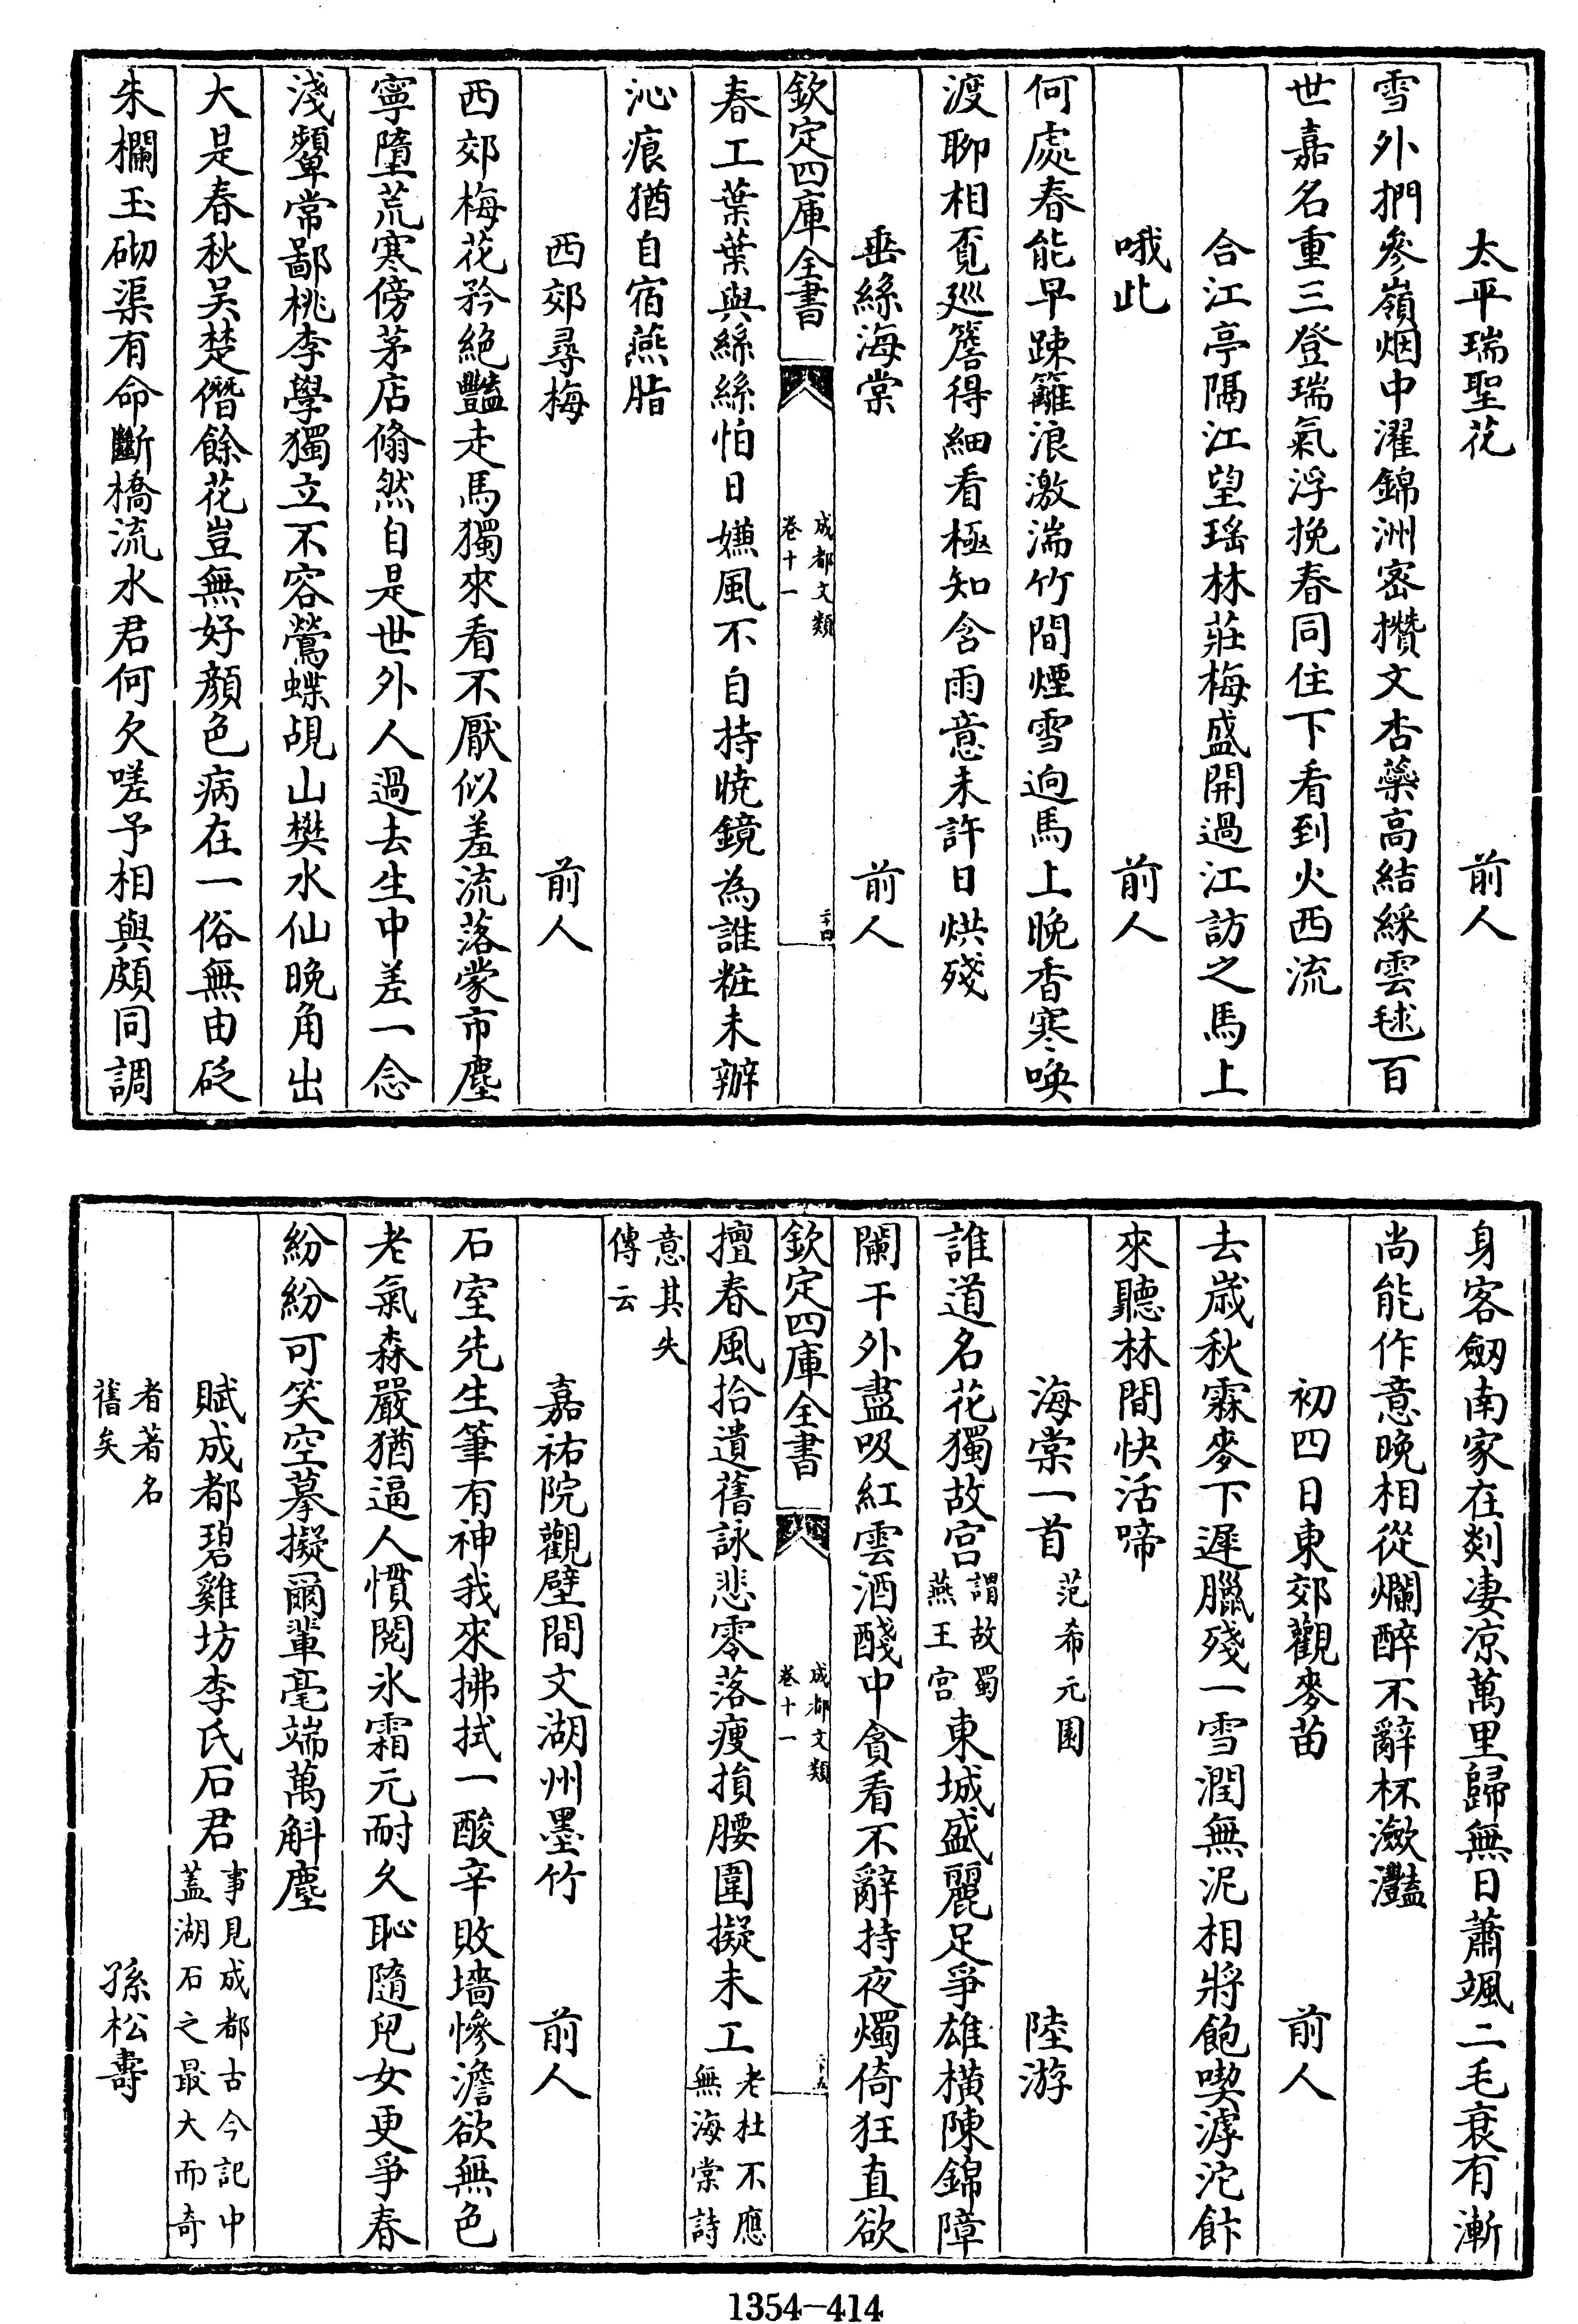 太平瑞聖花　前人
雪外捫參嶺烟中濯錦洲密攢文杏蘂高結綵雲毬百
世嘉名重三登瑞氣浮挽春同住下看到火西流
合江亭隔江望瑤林莊梅盛開過江訪之馬上
哦此　前人
何處春能早踈籬浪激湍竹間煙雪逈馬上晚香寒喚
渡聊相覔廵簷得細看極知含雨意未許日烘殘
垂絲海棠　前人
欽定四庫全書　成都文類　卷十一　二十四
春工葉葉與絲絲怕日嫌風不自持曉鏡為誰粧未辦
沁痕猶自宿燕脂
西郊尋梅　前人
西郊梅花矜絕豔走馬獨來看不厭似羞流落蒙市塵
寧墮荒寒傍茅店翛然自是世外人過去生中差一念
淺顰常鄙桃李學獨立不容鶯蝶覘山樊水仙晚角出
大是春秋吳楚僭餘花豈無好顔色病在一俗無由砭
朱欄玉砌渠有命斷橋流水君何欠嗟予相與頗同調
身客劒南家在剡凄凉萬里歸無日蕭颯二毛衰有漸
尚能作意晚相從爛醉不辭杯瀲灩
初四日東郊觀麥苗　前人
去歲秋霖麥下遲臘殘一雪潤無泥相將飽喫滹沱飰
來聽林間快活啼
海棠一首范希元園　陸游
誰道名花獨故宮謂故蜀燕王宮東城盛麗足爭雄橫陳錦障
闌干外盡吸紅雲酒醆中貪看不辭持夜燭倚狂直欲
欽定四庫全書　成都文類　卷十一　二十五
擅春風拾遺舊詠悲零落瘦損腰圍擬未工老杜不應無海棠詩
意其失傳云
嘉祐院觀壁間文湖州墨竹　前人
石室先生筆有神我來拂拭一酸辛敗墻慘澹欲無色
老氣森嚴猶逼人慣閱氷霜元耐久恥隨兒女更爭春
紛紛可笑空摹擬爾輩毫端萬斛塵
賦成都碧雞坊李氏石君事見成都古今記中蓋湖石之最大而奇
者著名舊矣　孫松壽
1354—414